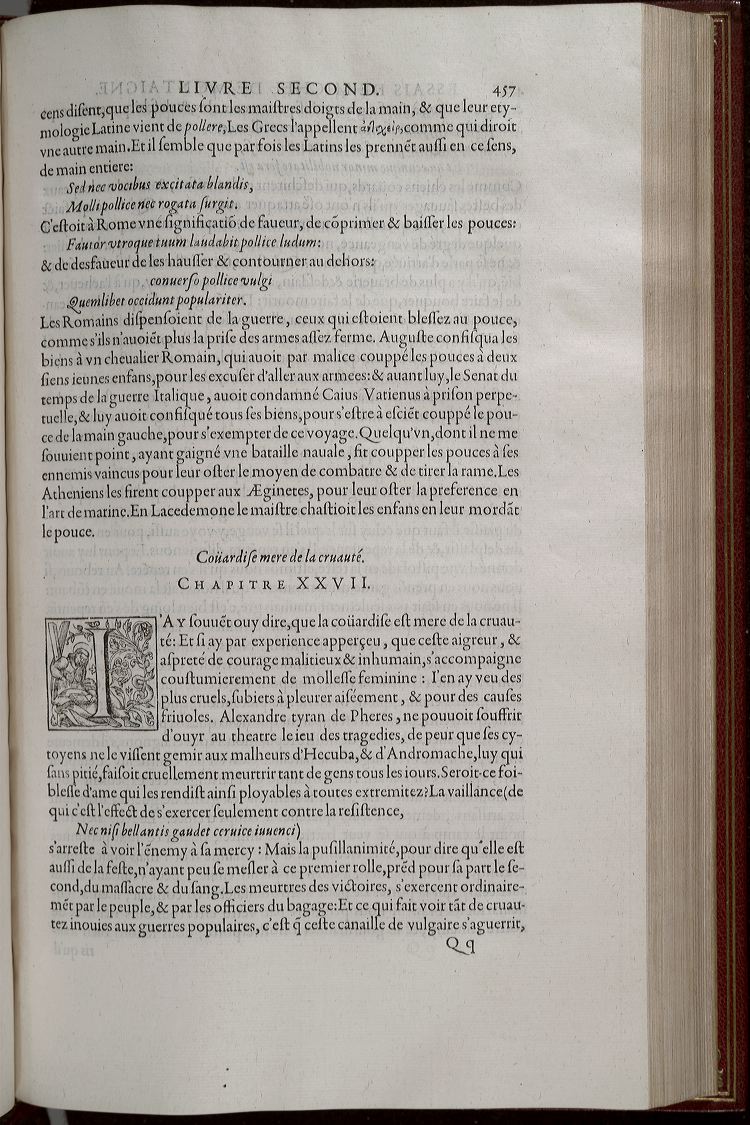 LIVRE SECOND. 457
cens diſent, que les pouces ſont les maiſtres doigts de la main, & que leur ety-
mologie Latine vient de pollere, Les Grecs l'appellent ἀντίχειρ, comme qui diroit
vne autre main. Et il ſemble que par fois les Latins les prennẽt auſſi en ce ſens,
de main entiere:
Sed nec vocibus excitata blandis,
Molli pollice nec rogata ſurgit.
C'eſtoit à Rome vne ſignificatiõ de faueur, de cõprimer & baiſſer les pouces:
Fautor vtroque tuum laudabit pollice ludum:
& de desfaueur de les hauſſer & contourner au dehors:
conuerſo pollice vulgi
Quemlibet occidunt populariter.
Les Romains diſpenſoient de la guerre, ceux qui eſtoient bleſſez au pouce,
comme s'ils n'auoiẽt plus la priſe des armes aſſez ferme. Auguſte confiſqua les
biens à vn cheualier Romain, qui auoit par malice couppé les pouces à deux
ſiens ieunes enfans, pour les excuſer d'aller aux armees: & auant luy, le Senat du
temps de la guerre Italique, auoit condamné Caius Vatienus à priſon perpe-
tuelle, & luy auoit confiſqué tous ſes biens, pour s'eſtre à eſciẽt couppé le pou-
ce de la main gauche, pour s'exempter de ce voyage. Quelqu'vn, dont il ne me
ſouuient point, ayant gaigné vne bataille nauale, fit coupper les pouces à ſes
ennemis vaincus pour leur oſter le moyen de combatre & de tirer la rame. Les
Atheniens les firent coupper aux Æginetes, pour leur oſter la preference en
l'art de marine. En Lacedemone le maiſtre chaſtioit les enfans en leur mordãt
le pouce.
Coüardiſe mere de la cruauté.
CHAPITRE XXVII.
I'AY ſouuẽt ouy dire, que la coüardiſe eſt mere de la cruau-
té: Et ſi ay par experience apperçeu, que ceſte aigreur, &
aſpreté de courage malitieux & inhumain, s'accompagne
couſtumierement de molleſſe feminine: I'en ay veu des
plus cruels, ſubiets à pleurer aiſéement, & pour des cauſes
friuoles. Alexandre tyran de Pheres, ne pouuoit ſouffrir
d'ouyr au theatre le ieu des tragedies, de peur que ſes cy-
toyens ne le viſſent gemir aux malheurs d'Hecuba, & d'Andromache, luy qui
ſans pitié, faiſoit cruellement meurtrir tant de gens tous les iours. Seroit-ce foi-
bleſſe d'ame qui les rendiſt ainſi ployables à toutes extremitez? La vaillance (de
qui c'eſt l'effect de s'exercer ſeulement contre la reſiſtence,
Nec niſi bellantis gaudet ceruice iuuenci)
s'arreſte à voir l'ẽnemy à ſa mercy: Mais la puſillanimité, pour dire qu'elle eſt
auſſi de la feſte, n'ayant peu ſe meſler à ce premier rolle, prẽd pour ſa part le ſe-
cond, du maſſacre & du ſang. Les meurtres des victoires, s'exercent ordinaire-
mẽt par le peuple, & par les officiers du bagage: Et ce qui fait voir tãt de cruau-
tez inouies aux guerres populaires, c'eſt q̃ ceſte canaille de vulgaire s'aguerrit,
Qq